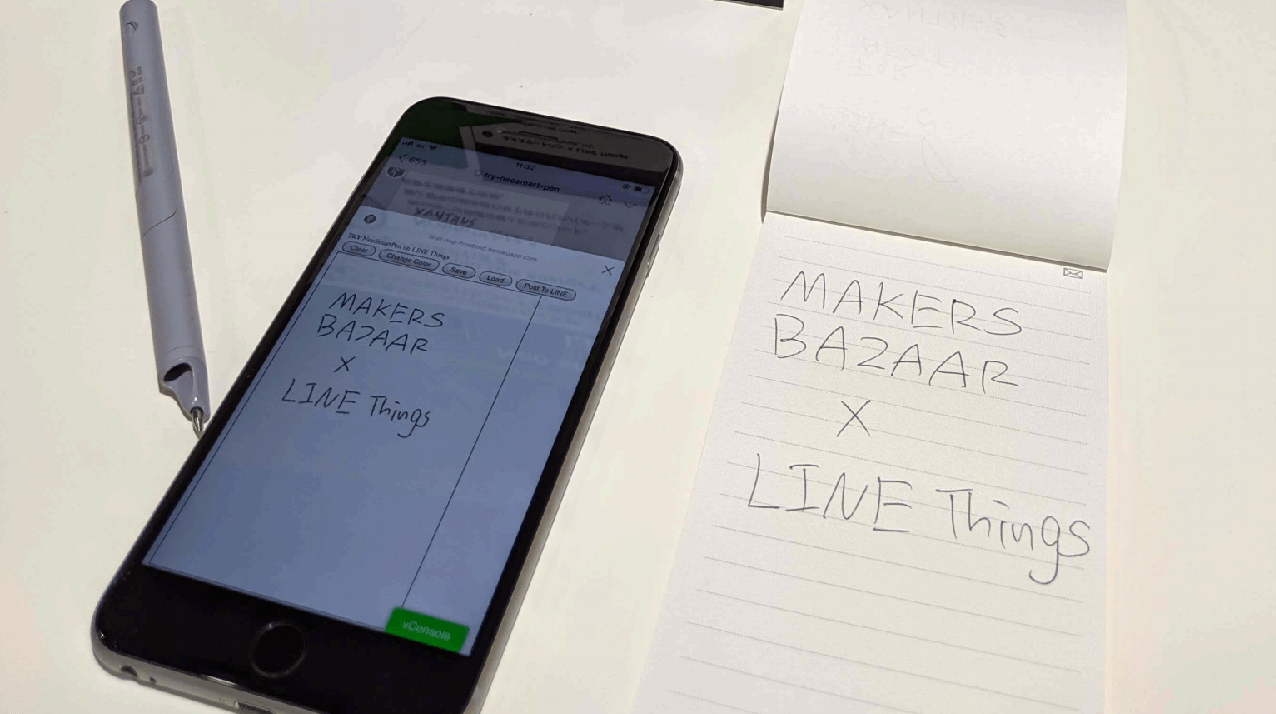 11:32
try-neosmart-pen
TRY NeoSmartPen in LINE Things
Clear
Change Color
Save
Load
Post To LINE
MAKERS
BAZAAR
X
LINE Things
vConsole
MAKERS
BAZAAR
X
LINE Things